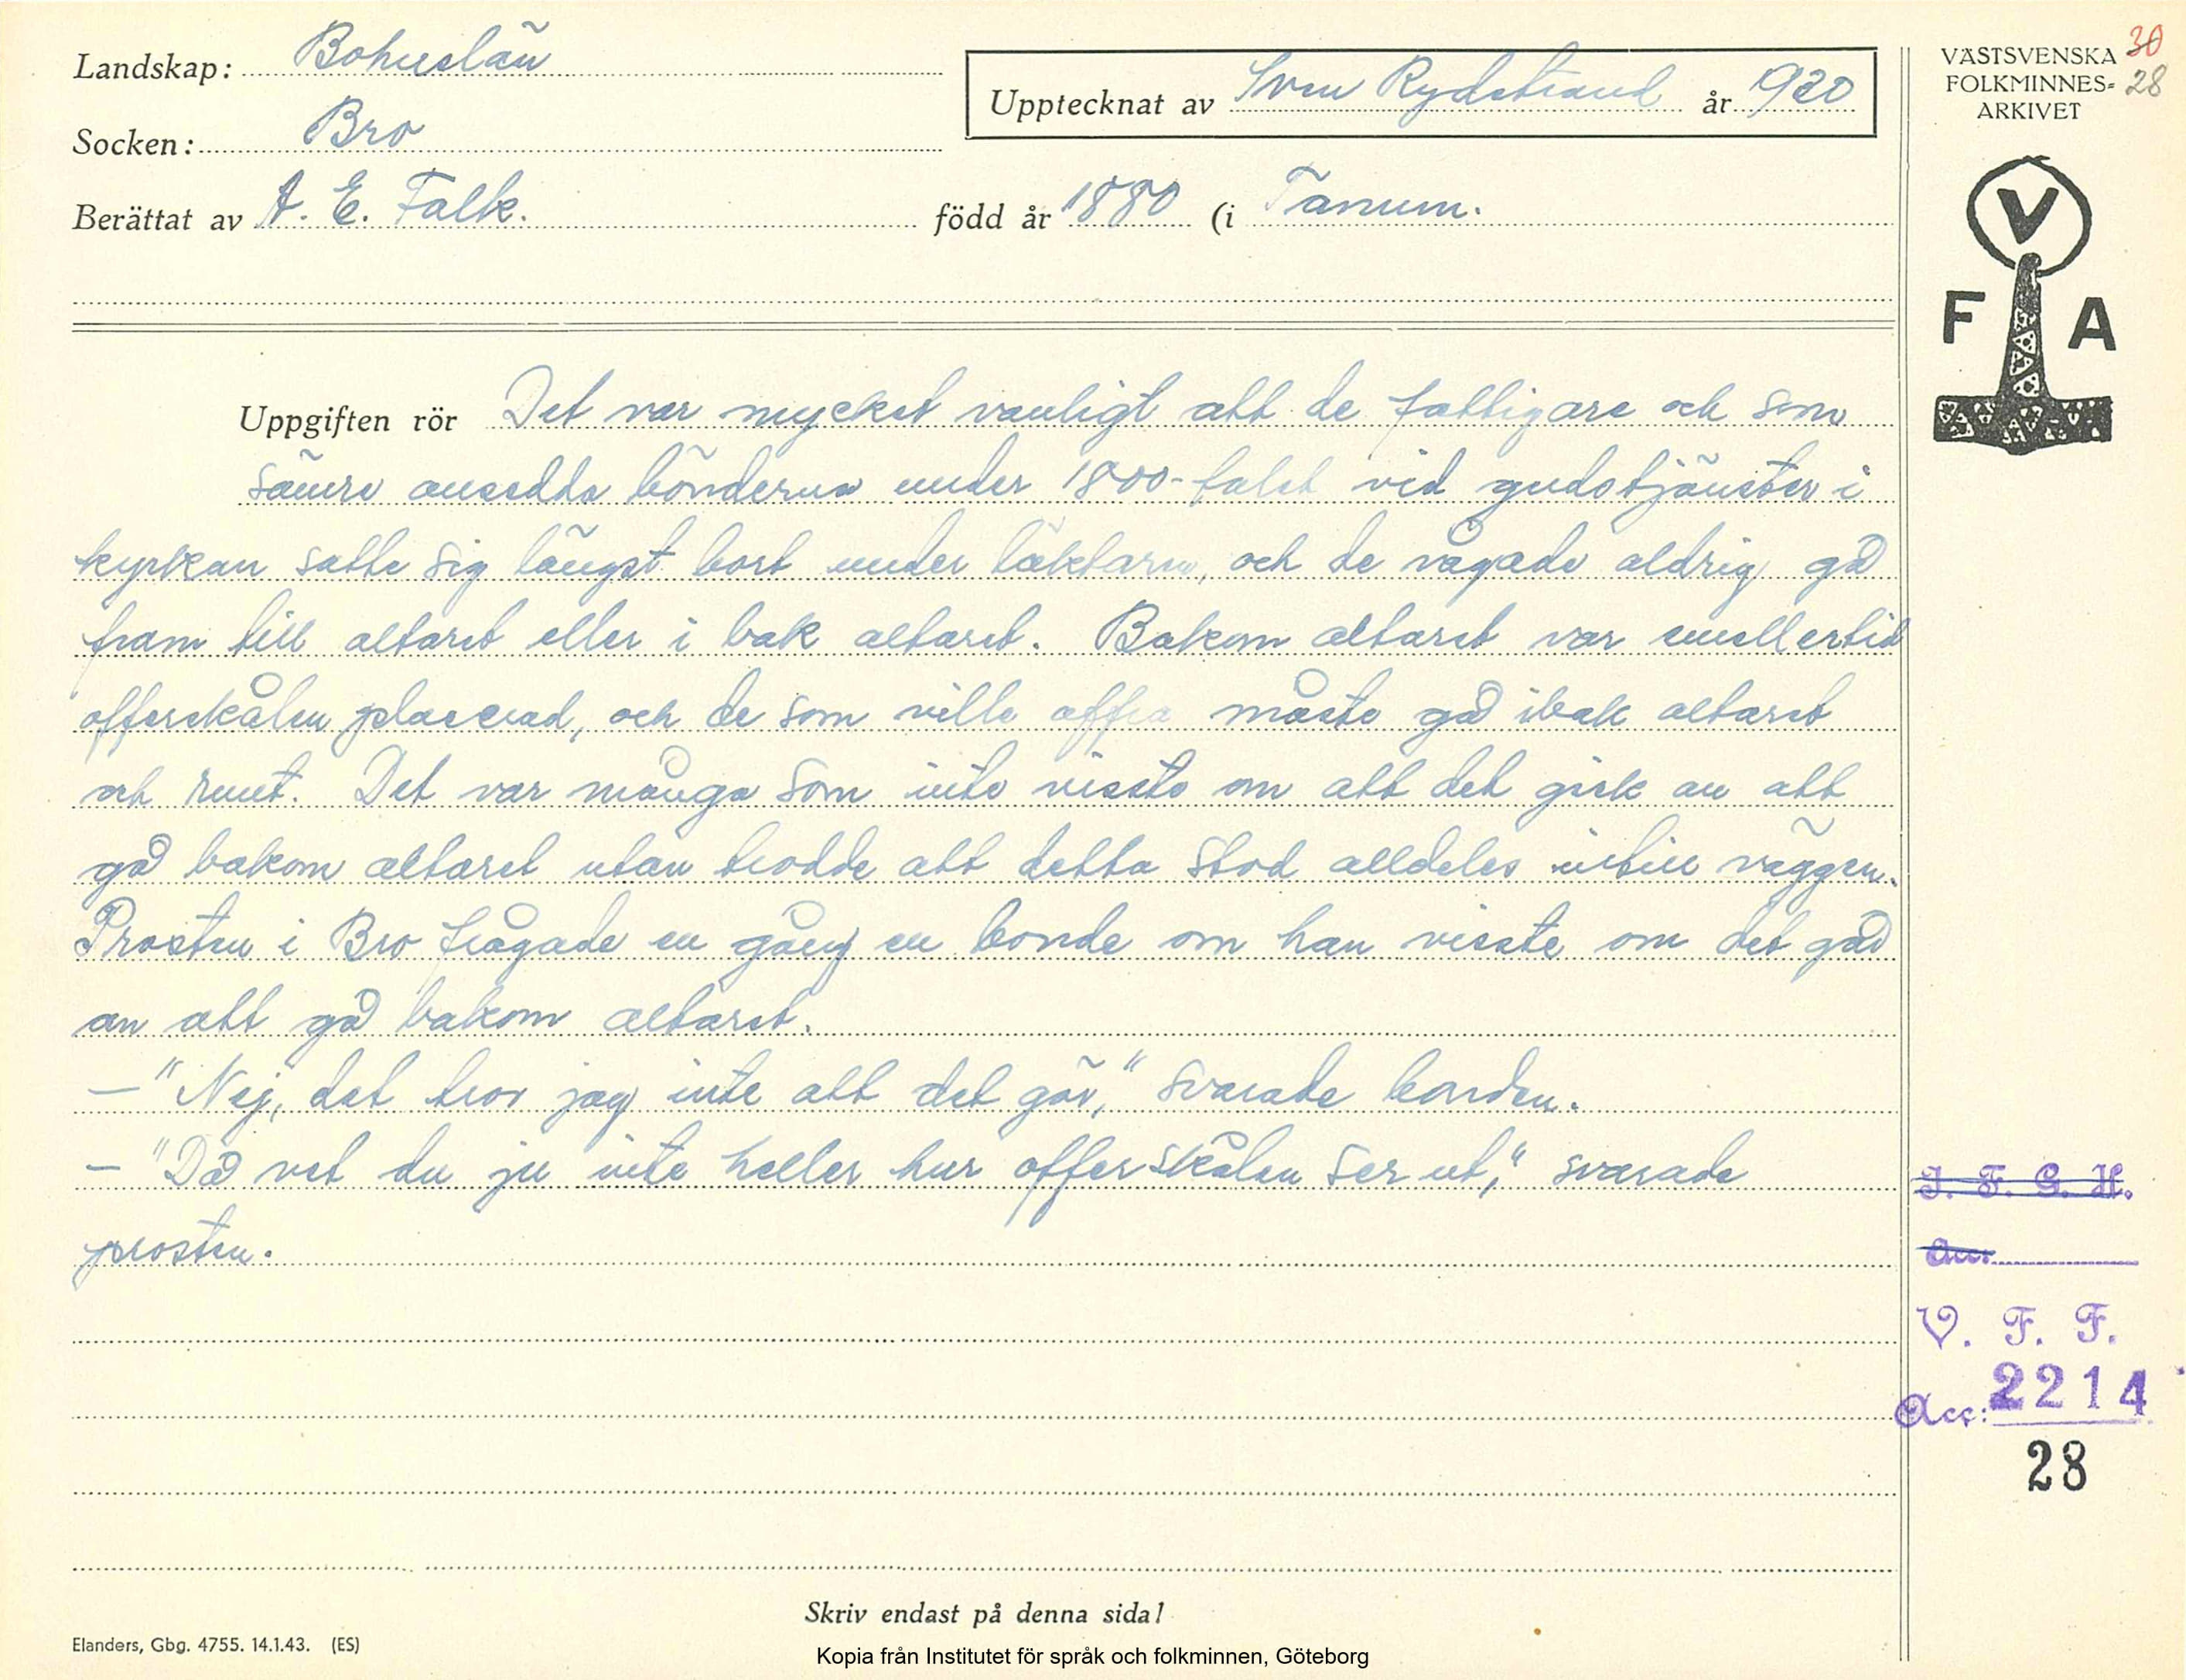 Landskap: Bohuslän
Upptecknat av Sven Rydstrand år 1920
VÄSTSVENSKA 30
FOLKMINNES= 28
ARKIVET
Socken: Bro
Berättat av A. E. Falk. född år 1880 (i Tanum.
V
F A
Uppgiften rör Det var mycket vanligt att de fattigare och som
sämre ansedda bönderna under 1800-talet vid gudstjänster i
kyrkan satte sig längst bort under läktarn, och de vågade aldrig gå
fram till altaret eller i bak altaret. Bakom altaret var emellertid
offerskålen placerad, och de som ville offra måste gå ibak altaret
och runt. Det var många som inte visste om att det gick an att
gå bakom altaret utan trodde att detta stod alldeles intill väggen.
Prosten i Bro frågade en gång en bonde om han visste om det gåd
an att gå bakom altaret.
— "Nej, det tror jag inte att det gör," svarade bonden.
— "Då vet du ju inte heller hur offerskålen ser ut," svarade
prosten.
I. F. G. H.
Acc.
V. F. F.
Acc: 2214
28
Skriv endast på denna sida!
Elanders, Gbg. 4755. 14.1.43. (ES)
Kopia från Institutet för språk och folkminnen, Göteborg